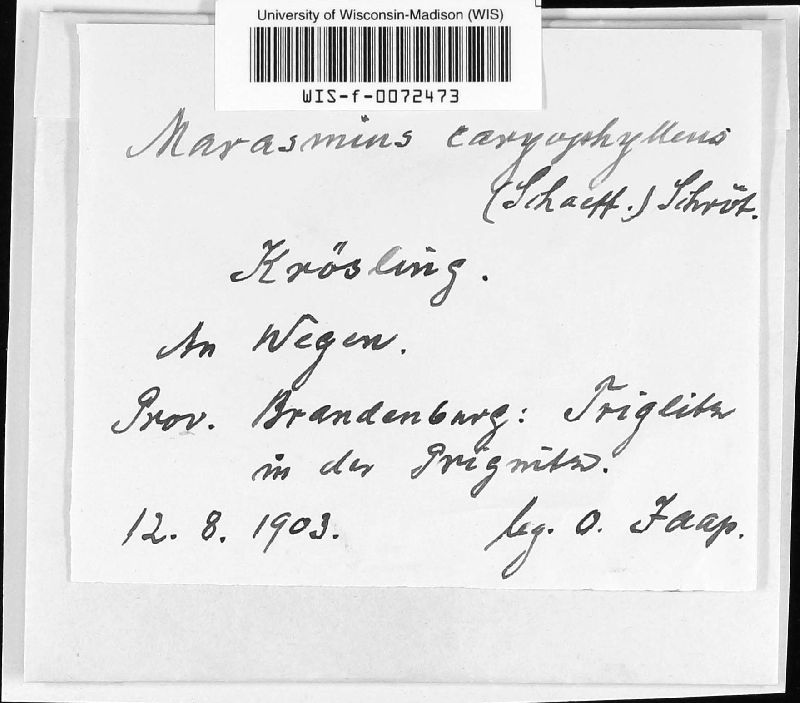 University of Wisconsin-Madison (WIS)
WIS-f-0072473
Marasmius caryophylleus
(Schaeff.) Schröt.
Krösling.
An Wegen.
Prov. Brandenburg: Triglitz
in der Prignitz.
12. 8. 1903. leg. O. Jaap.